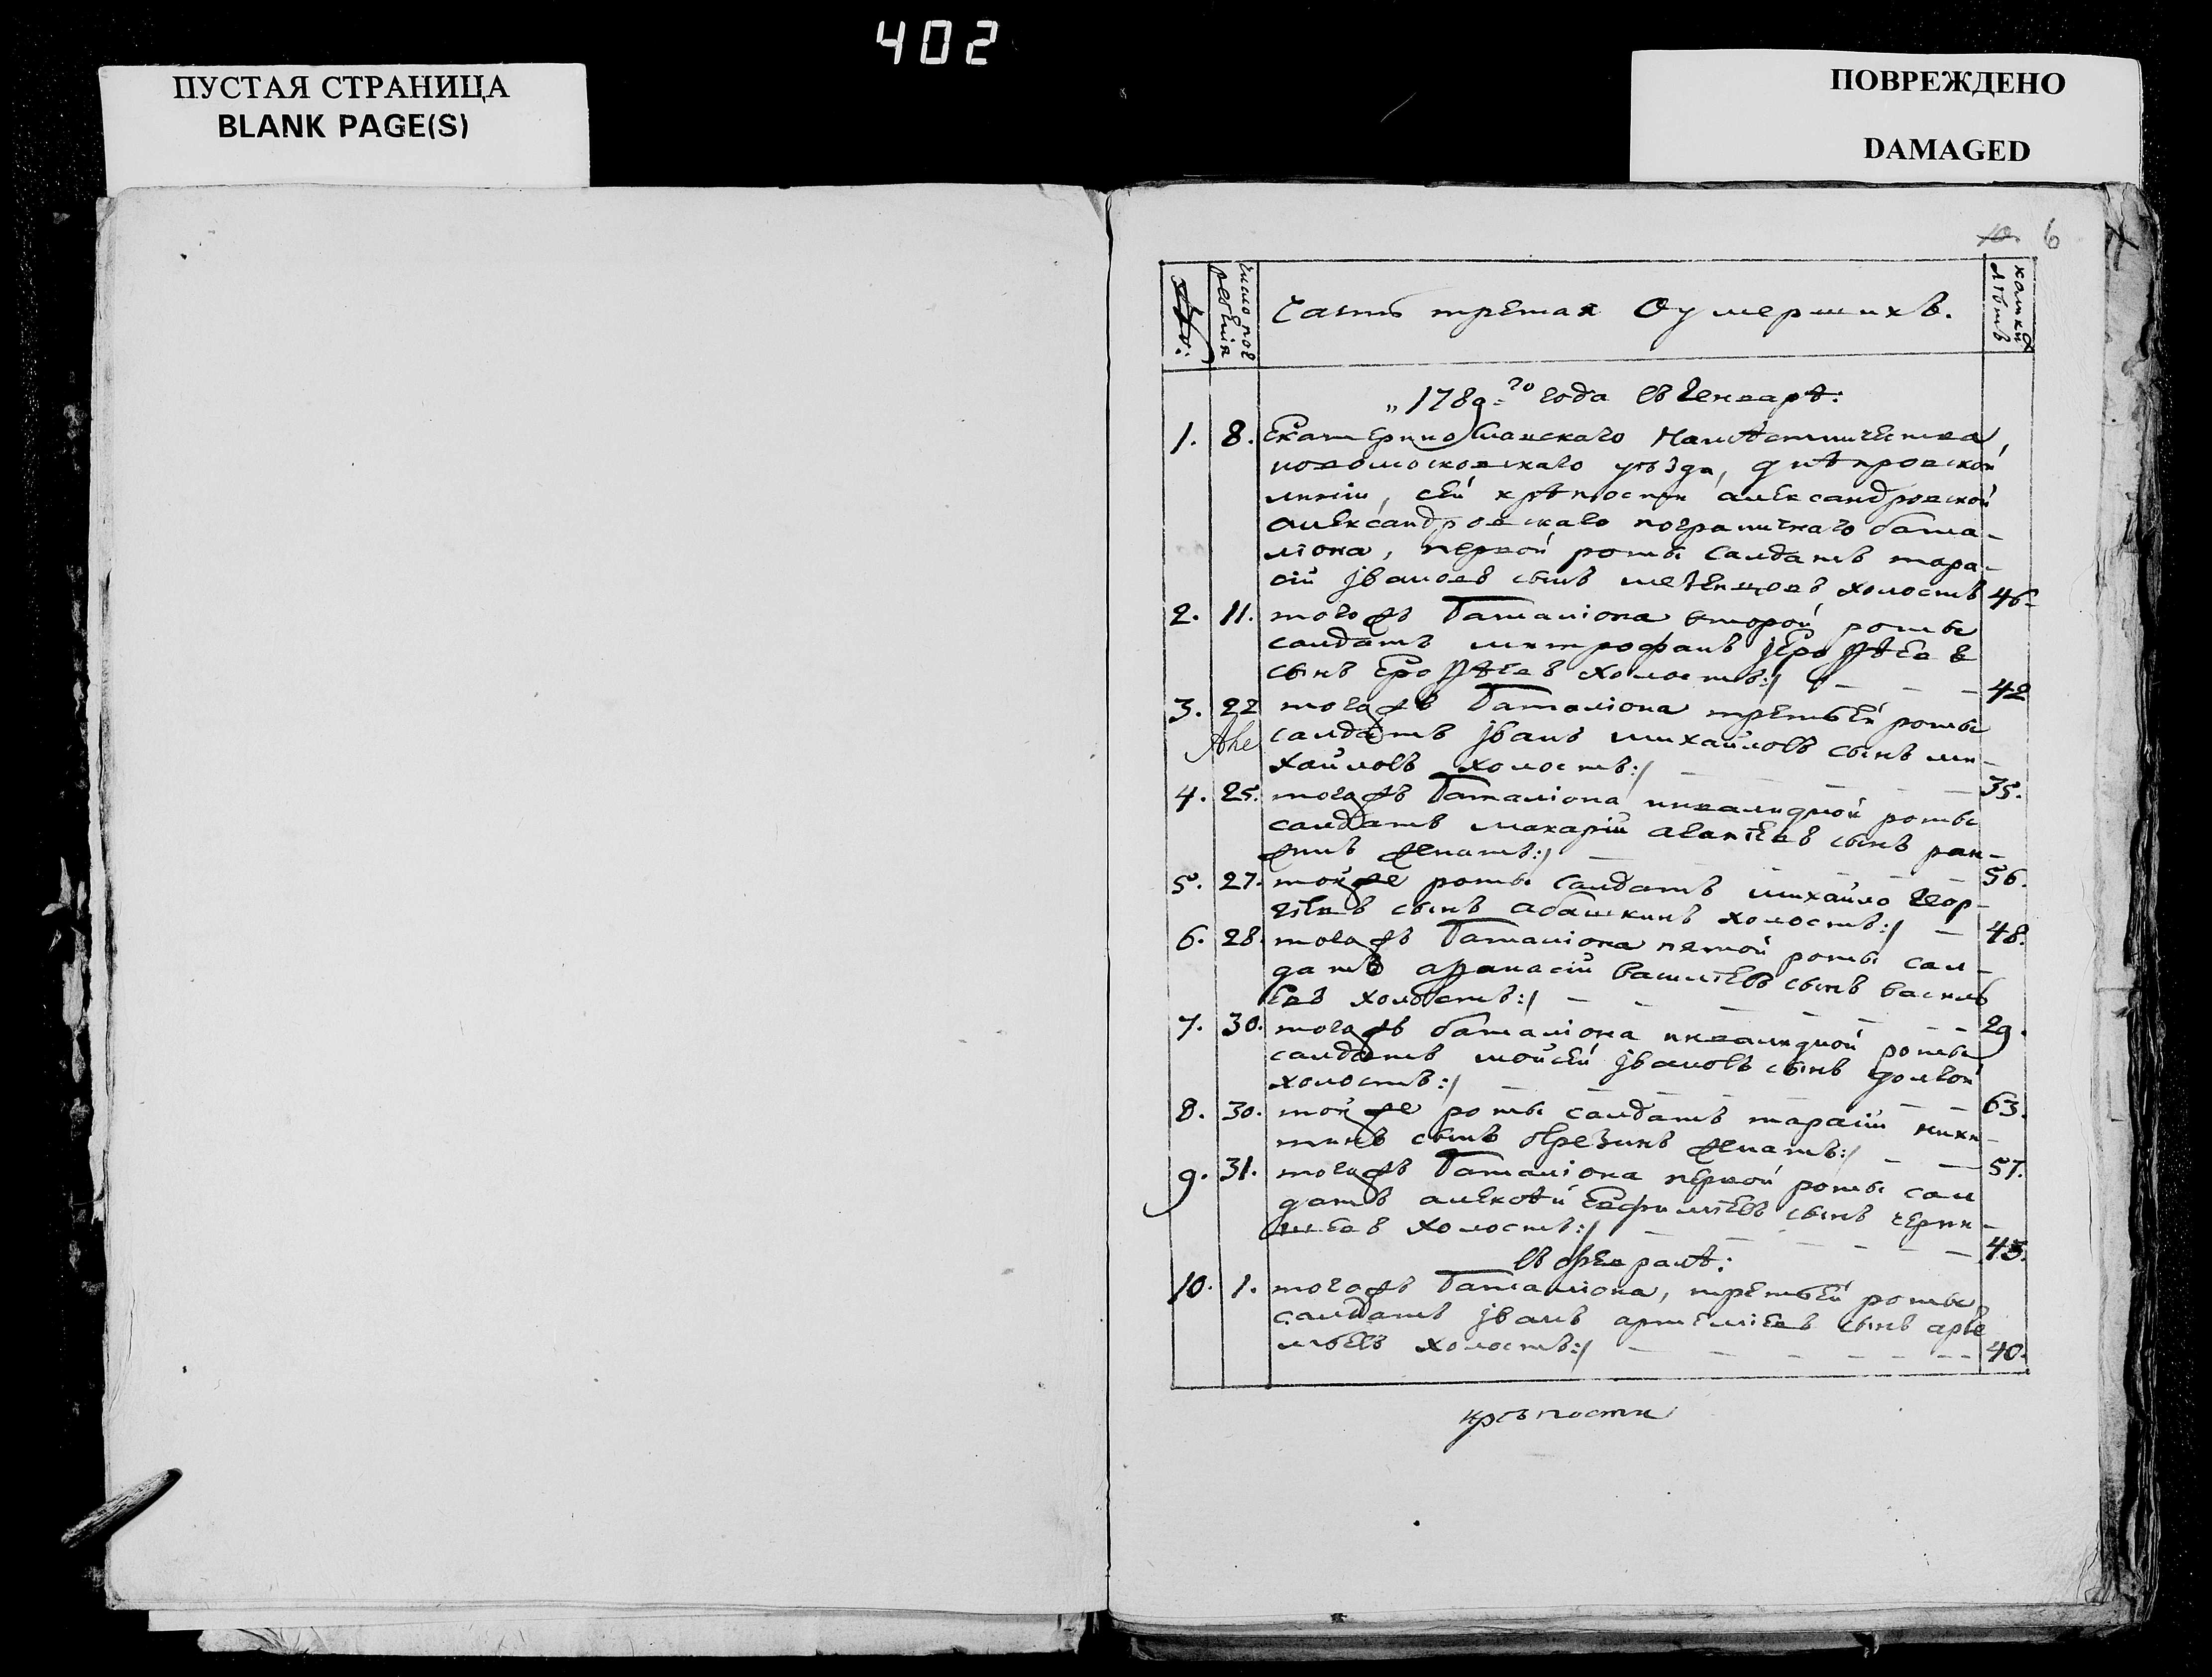 402
ПУСТАЯ СТРАНИЦА
BLANK PAGE(S)
ПОВРЕЖДЕНО
DAMAGED
10. 6
число погребенія
Часть третая Оумершихъ.
коликихъ лѣтъ
„1789=го года въ Генварѣ:
1. 8. Екатеринославскаго Намѣстничества,
новомосковскаго уѣзда, днѣпровской
линіи, сей крѣпости александровской
александровскаго пограничнаго бата-
ліона, первой роты салдатъ тара-
сій Iвановъ сынъ холостъ 46.
2. 11. тогожъ Баталіона второй роты
салдатъ митрофанъ Ерофѣевъ
сынъ Ерофѣевъ холостъ:/ — — — 42
3. 22 тогожъ Баталіона третьей роты
салдатъ Iванъ михайловъ сынъ ми-
хайловъ холостъ:/ — — — — 35.
4. 25. тогожъ Баталіона инвалидной роты
салдатъ макарій сынъ
женатъ:/ — — — — 56.
5. 27. тойже роты салдатъ михайло Геор-
гіевъ сынъ абашкинъ холостъ:/ — 48.
6. 28. тогожъ Баталіона пятой роты сал-
датъ афанасій васильевъ сынъ василь
евъ холостъ:/ — — — — — — 29.
7. 30. тогожъ баталіона инвалидной роты
салдатъ мойсей Iвановъ сынъ
холостъ:/ — — — — — 63.
8. 30. тойже роты салдатъ тарасій ники-
тинъ сынъ женатъ:/ — — 57.
9. 31. тогожъ Баталіона первой роты сал
датъ алексѣй Евфиміевъ сынъ черни-
шевъ холостъ:/ — — — — — 45.
въ февралѣ:
10. 1. тогожъ Баталіона, третьей роты
салдатъ Iванъ артеміевъ сынъ арте
мьевъ холостъ:/ — — — — — — 40.
крѣпости